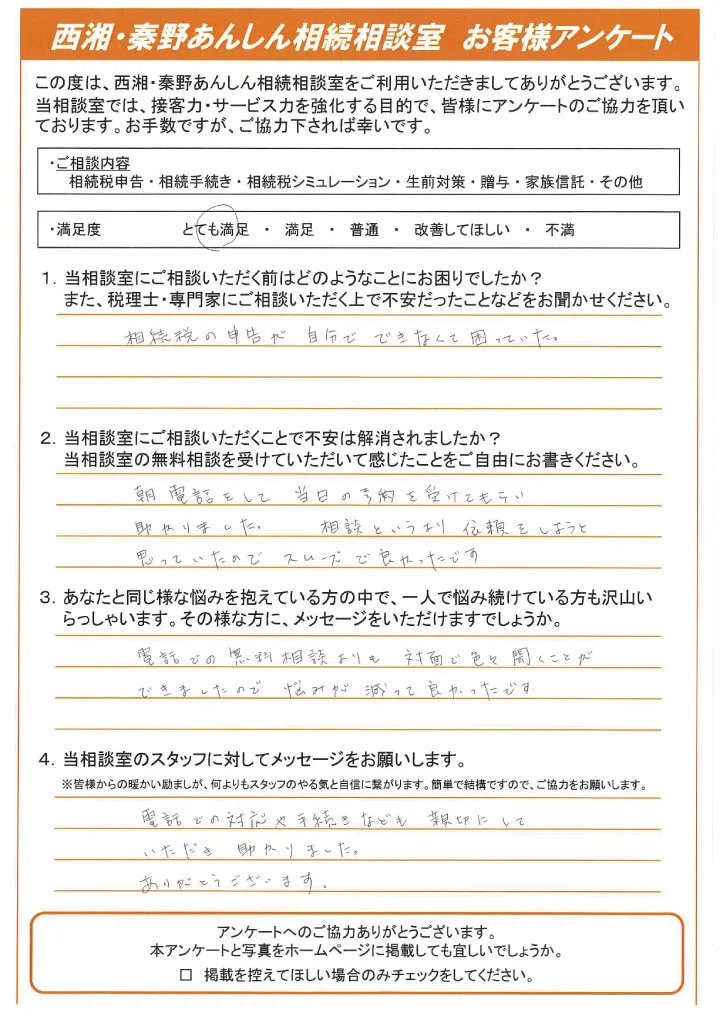 西湘・秦野あんしん相続相談室 お客様アンケート
この度は、西湘・秦野あんしん相続相談室をご利用いただきましてありがとうございます。
当相談室では、接客力・サービス力を強化する目的で、皆様にアンケートのご協力を頂い
ております。お手数ですが、ご協力下されば幸いです。
・ご相談内容
相続税申告・相続手続き・相続税シミュレーション・生前対策・贈与・家族信託・その他
・満足度 とても満足 ・ 満足 ・ 普通 ・ 改善してほしい ・ 不満
1. 当相談室にご相談いただく前はどのようなことにお困りでしたか?
また、税理士・専門家にご相談いただく上で不安だったことなどをお聞かせください。
相続税の申告が 自分で できなくて困っていた。
2. 当相談室にご相談いただくことで不安は解消されましたか?
当相談室の無料相談を受けていただいて感じたことをご自由にお書きください。
朝電話をして 当日の予約を受けてもらい
助かりました。 相談というより 依頼をしようと
思っていたので スムーズで良かったです
3. あなたと同じ様な悩みを抱えている方の中で、一人で悩み続けている方も沢山い
らっしゃいます。その様な方に、メッセージをいただけますでしょうか。
電話での無料相談よりも 対面で色々聞くことが
できましたので 悩みが 減って良かったです
4. 当相談室のスタッフに対してメッセージをお願いします。
※皆様からの暖かい励ましが、何よりもスタッフのやる気と自信に繋がります。簡単で結構ですので、ご協力をお願いします。
電話での対応や手続きなども 親切にして
いただき 助かりました。
ありがとうございます。
アンケートへのご協力ありがとうございます。
本アンケートと写真をホームページに掲載しても宜しいでしょうか。
□ 掲載を控えてほしい場合のみチェックをしてください。